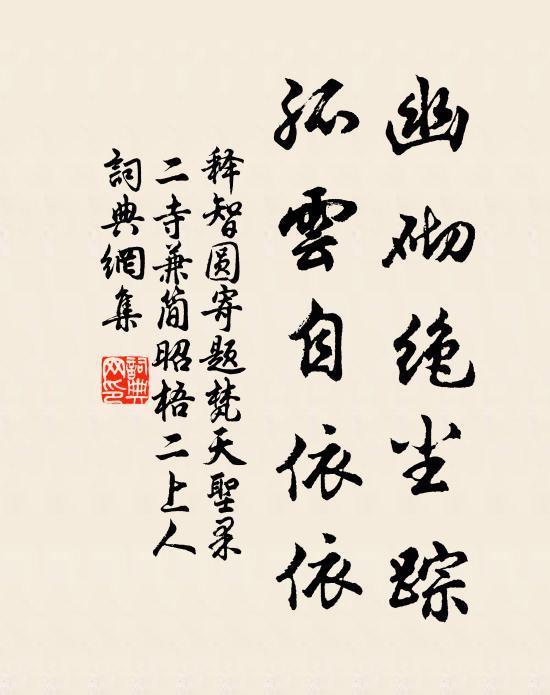 幽砌绝尘踪
孤雲自依依
释智圆寄题梵天聖果
二寺兼简昭梧二上人
詞典網集
詞典
网印